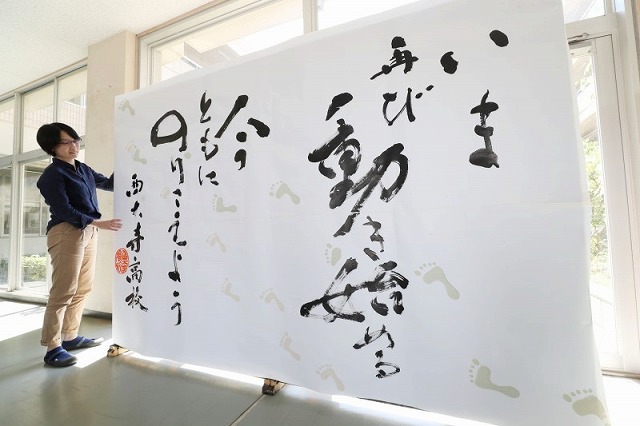 いま
再び
動き始める
今
ともに
のりこえよう
西大寺高校